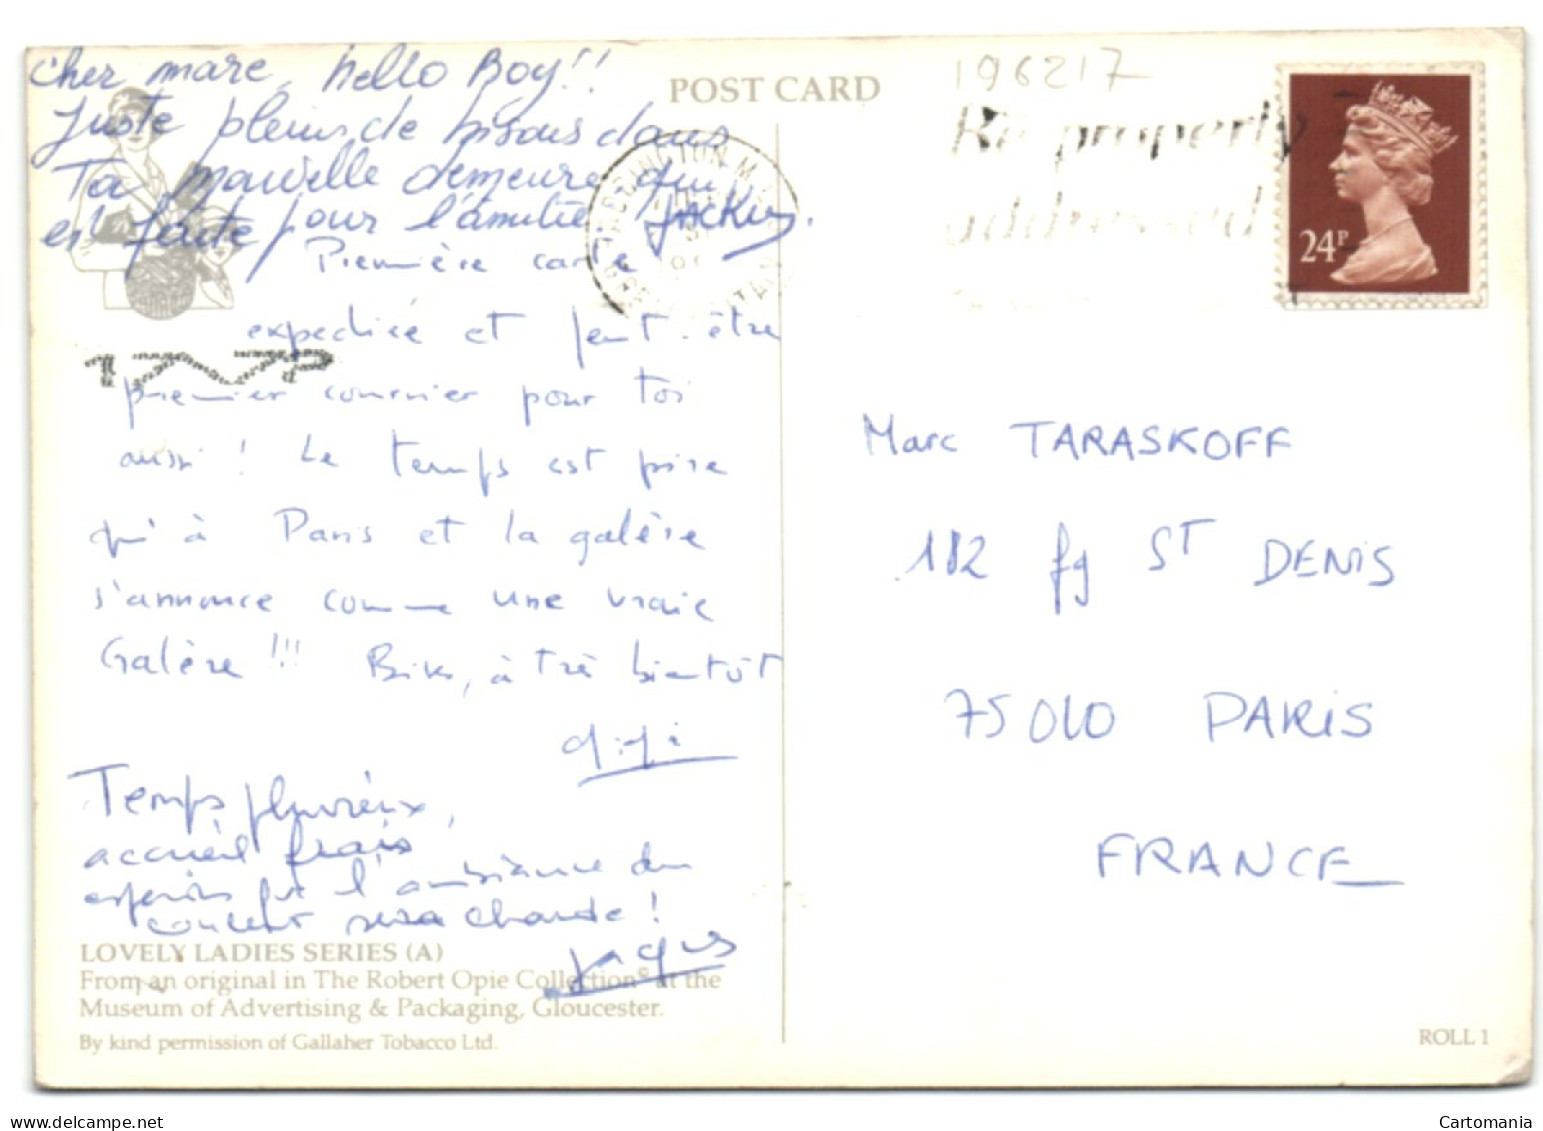 POST CARD
196217
Cher marc, hello Boy!!
Juste pleins de bisous dans
Ta nouvelle demeure qui
est faite pour l'amitié Jacky.
Première carte
expediée et peut-être
premier courrier pour toi
aussi ! Le temps est pire
qu'à Paris et la galère
s'annonce comme une vraie
Galère !!! Bises, à très bientôt
gigi
Temps pluvieux,
accueil frais
espérons que l'ambiance du
concert sera chaude !
Be properly
addressed
24P
Marc TARASKOFF
182 fg ST DENIS
75010 PARIS
FRANCE
LOVELY LADIES SERIES (A)
From an original in The Robert Opie Collection© at the
Museum of Advertising & Packaging, Gloucester.
By kind permission of Gallaher Tobacco Ltd.
ROLL 1
Cartomania